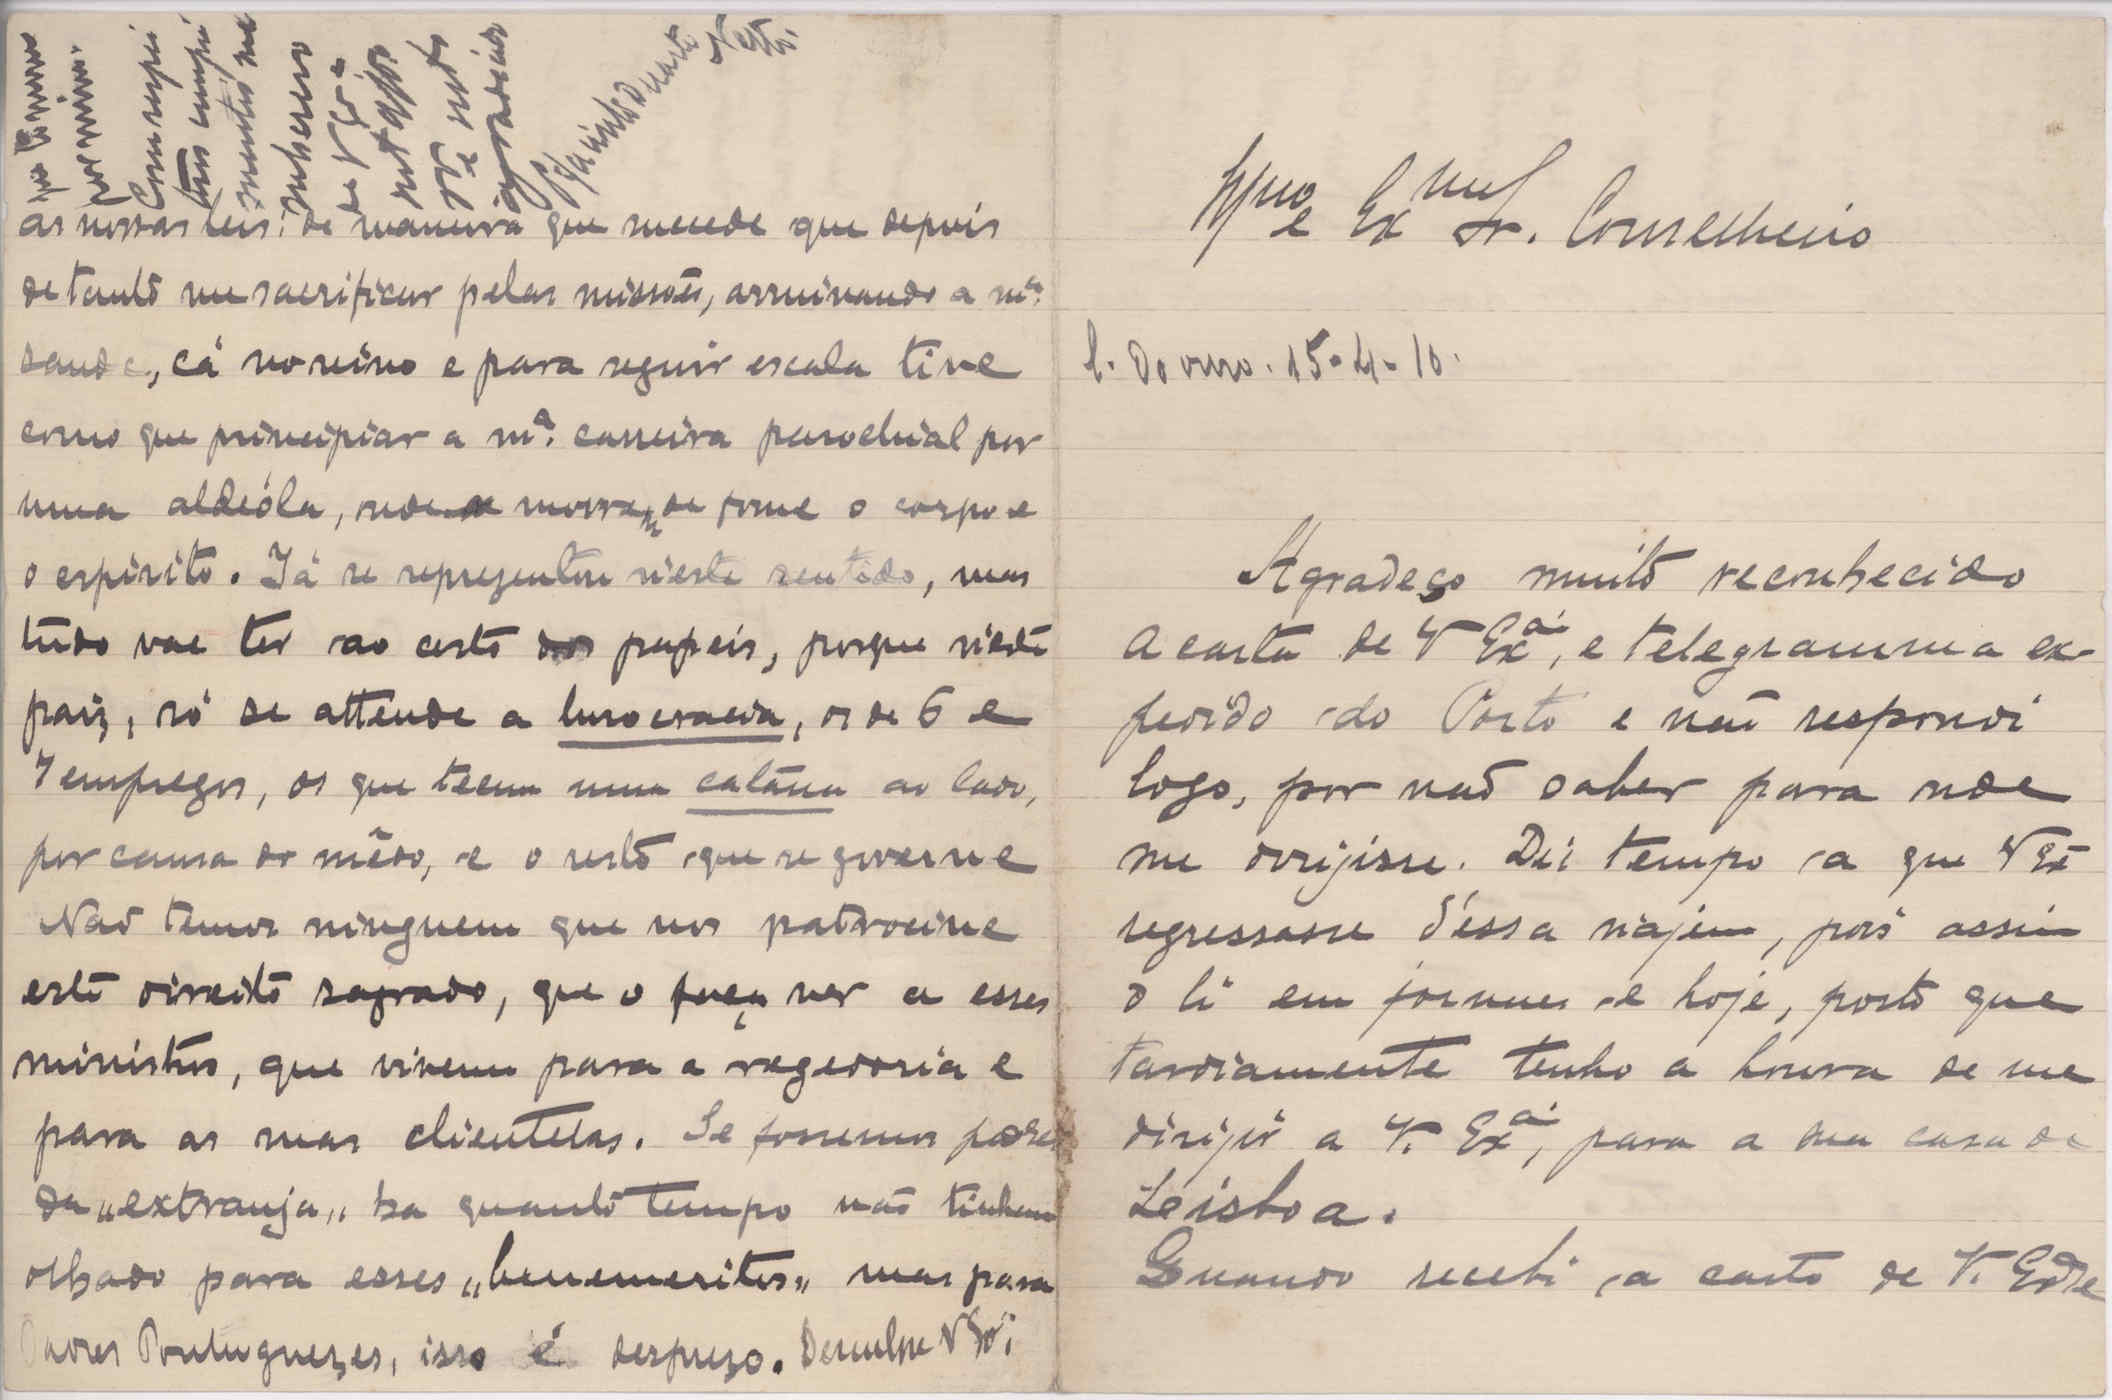 Illmo e Exmo Sr. Conselheiro
15-4-10.
Agradeço muito reconhecido
a carta de V Exa, e telegramma ex-
pedido do Porto e não respondi
logo, por não saber para onde
me dirijisse. Dei tempo a que V Ex
regressasse d'essa viajem, pois assim
o li em jornaes e hoje, posto que
tardiamente tenho a honra de me
dirijir a V. Exa, para a sua casa de
Leisboa.
Quando recebi a carta de V. Exa
as nossas leis: de maneira que sucede que depois
de tanto me sacrificar pelas missões, arruinando a ma.
saude, cá no reino e para seguir escala tive
como que principiar a ma. carreira parochial por
uma aldeóla, onde morrem de fome o corpo e
o espirito. Já se representou n'este sentido, mas
tudo vae ter ao cesto dos papeis, porque n'este
paiz, só se attende a burocracia, os de 6 e
7 empregos, os que teem uma catana ao lado,
por causa do mêdo, e o resto que se governe
Não temos ninguem que nos patrocine
este direito sagrado, que o faça ver a esses
ministros, que vivem para a regedoria e
para as suas clientelas. Se fossemos padres
da "extranja" ha quanto tempo não tinham
olhado para esses "benemeritos" mas para
Padres Portuguezes, isso é desprezo. Desculpe V Exa